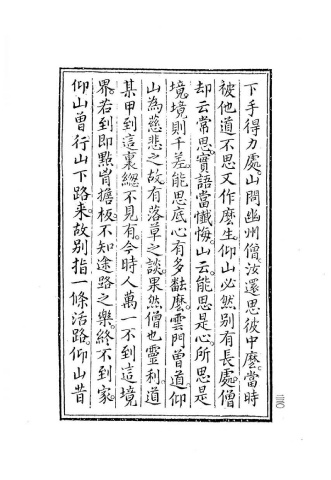 下手得力處山問幽州僧汝還思彼中麼當時
被他道不思又作麼生仰山必然別有長處僧
却云常思實語當懺悔山云能思是心所思是
境境則千差能思底心有多般麼雲門曾道仰
山為慈悲之故有落草之談果然僧也靈利道
某甲到這裏緫不見有今時人萬一不到這境
界若到即點胷擔板不知途路之樂終不到家
仰山曾行山下路來故別指一條活路仰山昔